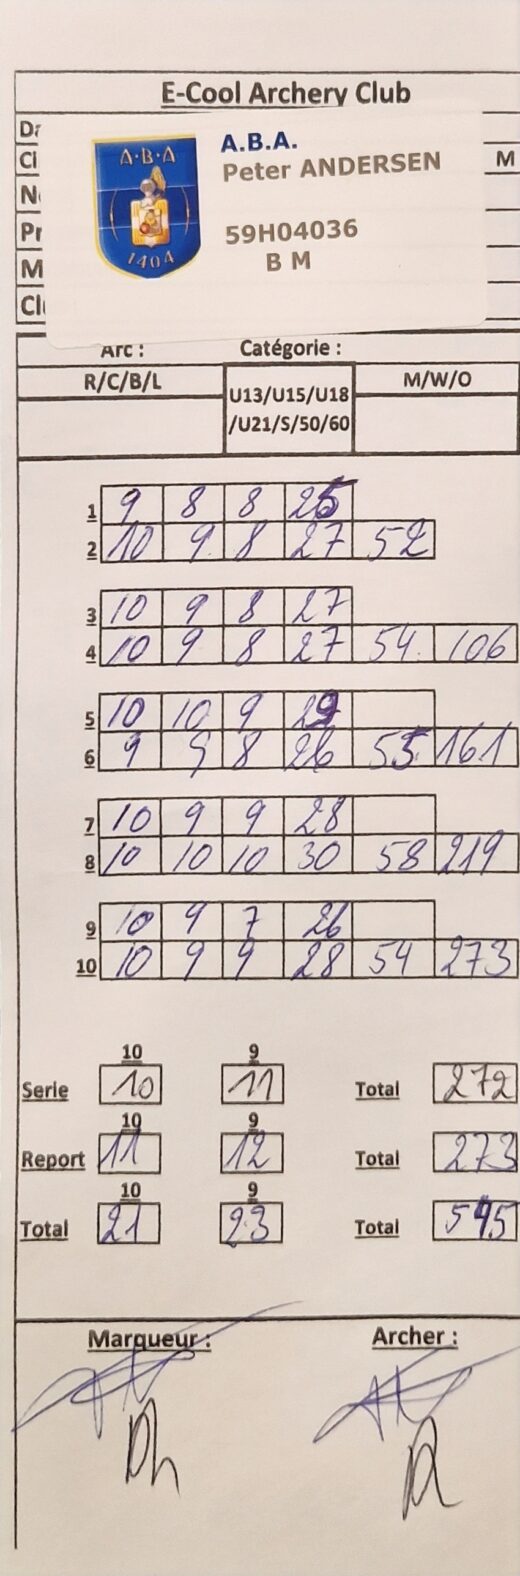 E-Cool Archery Club
Da
Ci M
N
Pr
M
Cl
A·B·A
1404
A.B.A.
Peter ANDERSEN
59H04036
B M
Arc : Catégorie :
R/C/B/L U13/U15/U18 /U21/S/50/60 M/W/O
1 9 8 8 25
2 10 9 8 27 52
3 10 9 8 27
4 10 9 8 27 54 106
5 10 10 9 29
6 9 9 8 26 55 161
7 10 9 9 28
8 10 10 10 30 58 219
9 10 9 7 26
10 10 9 9 28 54 273
10 9
Serie 10 11 Total 272
10 9
Report 11 12 Total 273
10 9
Total 21 23 Total 545
Marqueur : Archer :